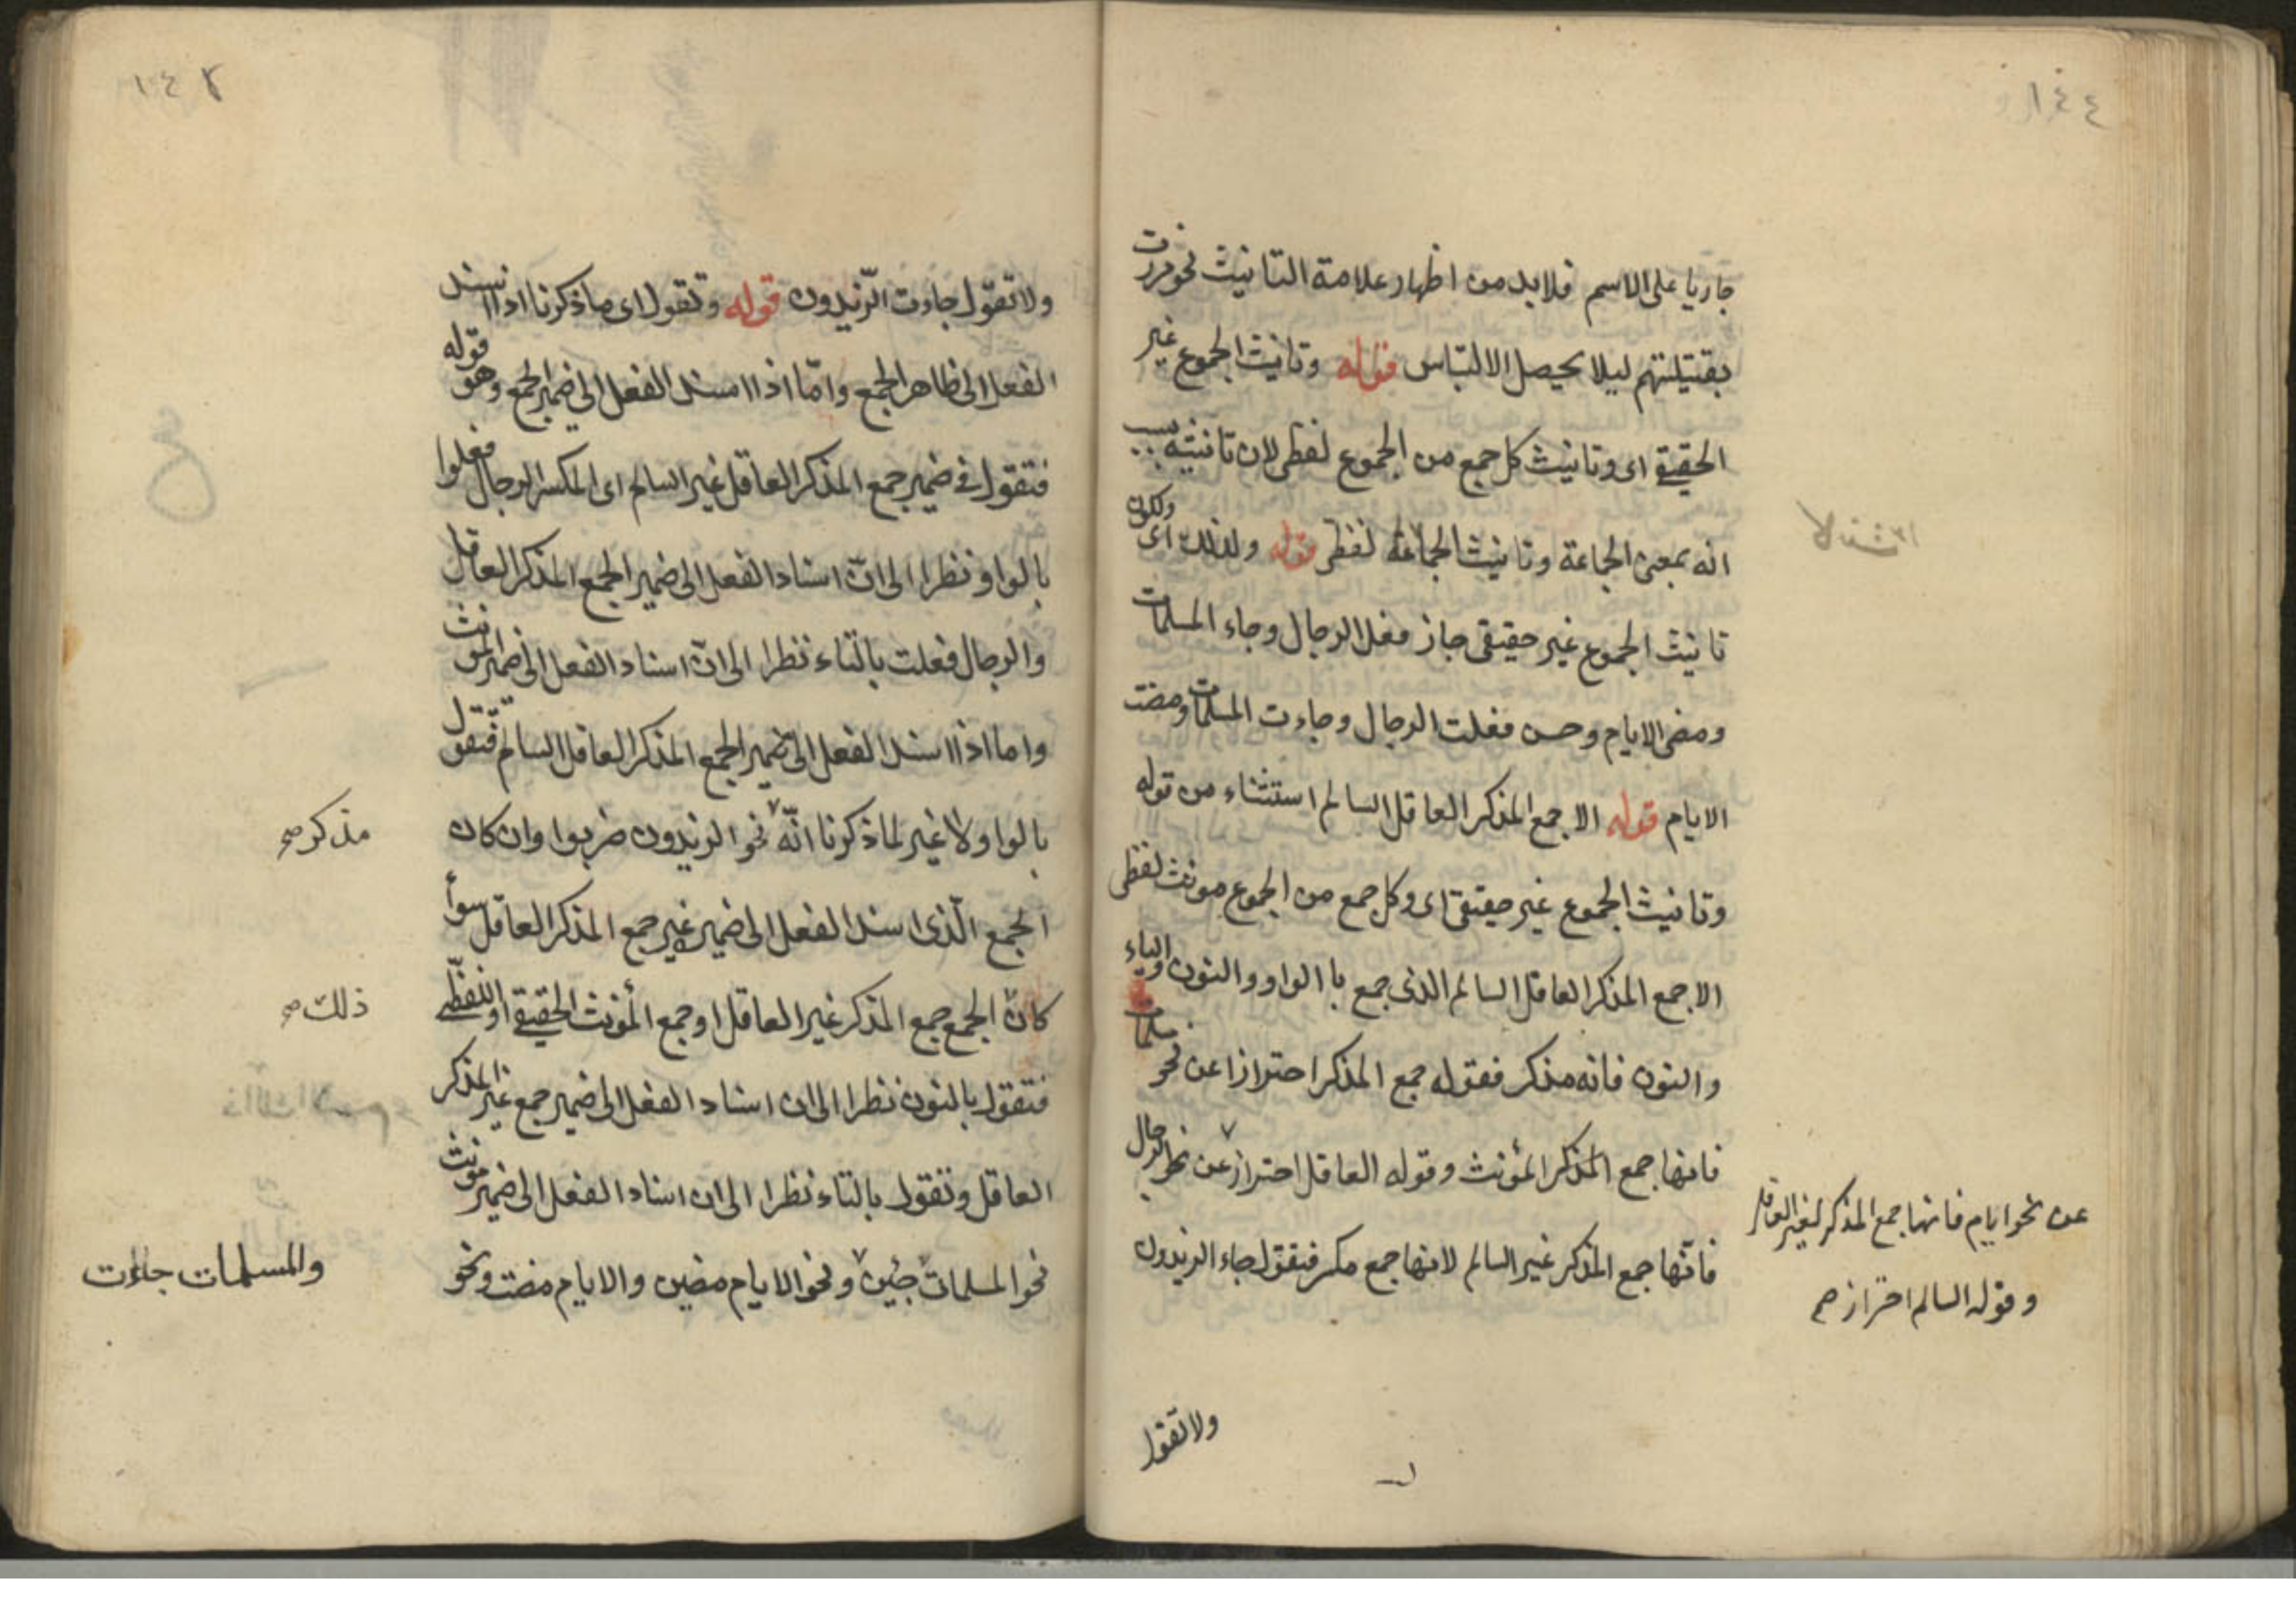 ١٤٤
جاريا على الاسم فلابد من اظهار علامة التانيث نحو مررت
بقتيلتهم ليلا يحصل الالتباس قوله وتانيث الجموع غير
الحقيقے اى وتانيث كل جمع من الجموع لفظى لان تانيثه بسبب
انه بمعنى الجماعة وتانيث الجماعة لفظى قوله ولذلك اى ولكون
تانيث الجموع غير حقيقى جاز فعل الرجال وجاء المسلمات
ومضى الايام وحسن فعلت الرجال وجاءت المسلمات ومضت
الايام قوله الا جمع المذكر العاقل السالم استثناء من قوله
وتانيث الجموع غير حقيقى اى وكل جمع من الجموع مونث لفظى
الا جمع المذكر العاقل السالم الذى جمع با الواو والنون والياء
والنون فانه مذكر فقوله جمع المذكر احترازا عن نحو مسلمات
فانها جمع المذكر المؤنث وقوله العاقل احتراز عن نحو الرجال
فانها جمع المذكر غير السالم لانها جمع مكسر فتقول جاء الزيدون
عن نحو ايام فانها جمع المذكر لغير العاقل
وقوله السالم احتراز صح
ولا تقول
ولا تقول جاءت الزّيدون قوله وتقول اى ما ذكرنا اذا اسند
الفعل الى ظاهر الجمع وامّا اذا اسند الفعل الى ضمير الجمع وهو قوله
فتقول فى ضمير جمع المذكر العاقل غير السالم اى المكسر الرجال فعلوا
بالواو نظرا الى انّ اسناد الفعل الى ضمير الجمع المذكر العاقل
والرجال فعلت بالتاء نظرا الى انّ اسناد الفعل الى ضمير المؤنث
واما اذا اسند الفعل الى ضمير الجمع المذكر العاقل السالم فتقول
بالواو لا غير لما ذكرنا انّه نحو الزيدون ضربوا وان كان
مذكر صح
الجمع الّذى اسند الفعل الى ضميره غير جمع المذكر العاقل سوأ
كان الجمع جمع المذكر غير العاقل او جمع المؤنث الحقيقے او اللفظے
ذلك صح
فتقول بالنون نظرا الى ان اسناد الفعل الى ضمير جمع غير المذكر
العاقل وتقول بالتاء نظرا الى ان اسناد الفعل الى ضمير مونث
نحو المسلمات جئين ونحو الايام مضين والايام مضت ونحو
والمسلمات جاءت